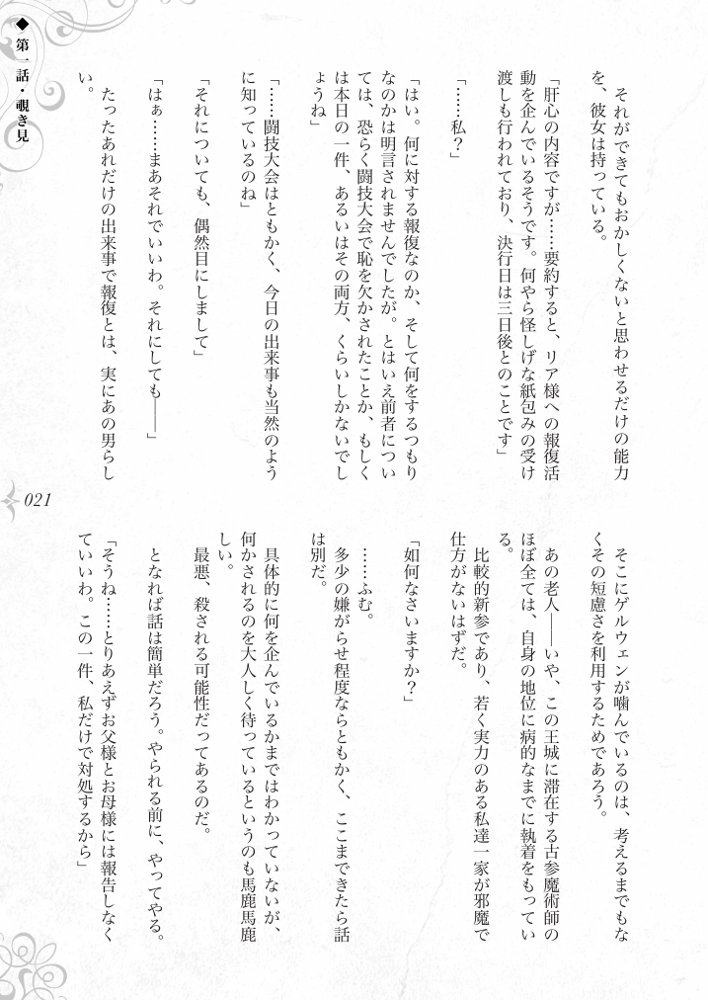 ◆ 第一話・覗き見
それができてもおかしくないと思わせるだけの能力
を、彼女は持っている。
「肝心の内容ですが……要約すると、リア様への報復活
動を企んでいるそうです。何やら怪しげな紙包みの受け
渡しも行われており、決行日は三日後とのことです」
「……私？」
「はい。何に対する報復なのか、そして何をするつもり
なのかは明言されませんでしたが。とはいえ前者につい
ては、恐らく闘技大会で恥を欠かされたことか、もしく
は本日の一件、あるいはその両方、くらいしかないでし
ょうね」
「……闘技大会はともかく、今日の出来事も当然のよう
に知っているのね」
「それについても、偶然目にしまして」
「はぁ……まあそれでいいわ。それにしても――」
たったあれだけの出来事で報復とは、実にあの男らし
い。
そこにゲルウェンが噛んでいるのは、考えるまでもな
くその短慮さを利用するためであろう。
あの老人――いや、この王城に滞在する古参魔術師の
ほぼ全ては、自身の地位に病的なまでに執着をもってい
る。
比較的新参であり、若く実力のある私達一家が邪魔で
仕方がないはずだ。
「如何なさいますか？」
……ふむ。
多少の嫌がらせ程度ならともかく、ここまできたら話
は別だ。
具体的に何を企んでいるかまではわかっていないが、
何かされるのを大人しく待っているというのも馬鹿馬鹿
しい。
最悪、殺される可能性だってあるのだ。
となれば話は簡単だろう。やられる前に、やってやる。
「そうね……とりあえずお父様とお母様には報告しなく
ていいわ。この一件、私だけで対処するから」
021